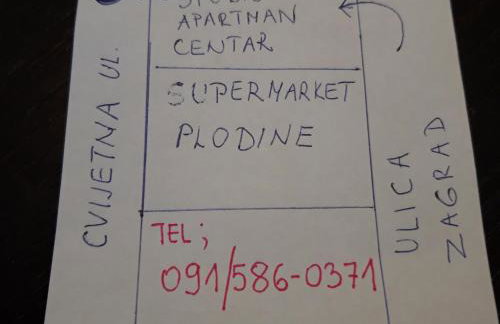 STUDIO
APARTMAN
CENTAR
SUPERMARKET
PLODINE
CVIJETNA UL.
ULICA
ZAGRAD
TEL;
091/586-0371